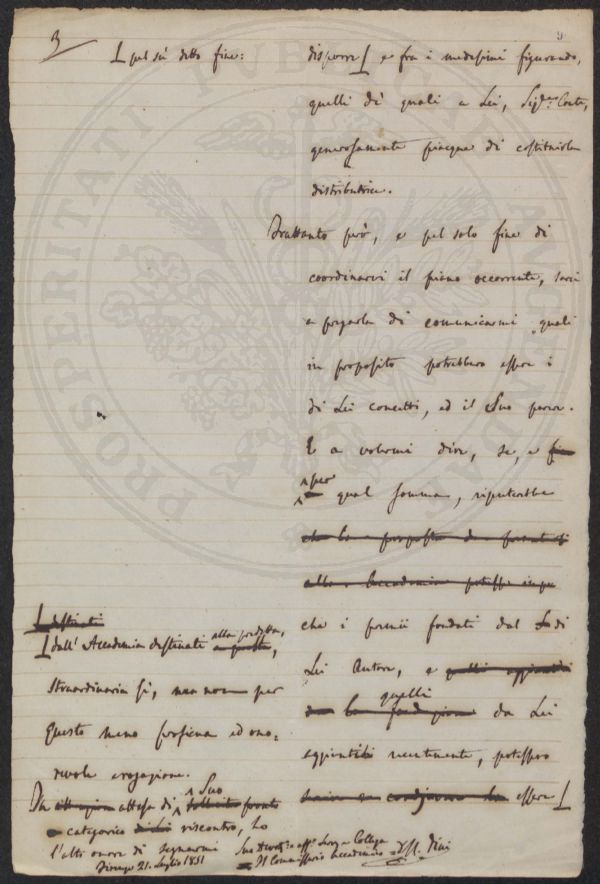 3
9
[ pel su detto fine:
disporre [ e fra i medesimi figurando,
quelli di quali a Lei, Sig.r Conte,
generosamente piacque di costituirla
distributrice.
Frattanto però, e pel solo fine di
coordinarvi il piano occorrente, sarei
a pregarla di comunicarmi quali
in proposito potrebbero essere i
di Lei concetti, ed il Suo parere.
E a volermi dire, se, e
per
qual somma, reputerebbe
che la proposta
alla Accademia potesse
che i premii fondati dal di
Lei Autore, e
quelli
da Lei
aggiunti recentemente, potessero
essere [
[ destinati
[ dall' Accademia destinati alla predetta,
straordinaria sì, per
questo meno proficua ed ono-
revole erogazione.
In attesa di Suo
categorico riscontro, ho
l'alto onore di segnarmi
Firenze 21. Luglio 1851
Suo Devot.o aff. Serv. e Collega
Il Commissario Accademico
PROSPERITATI PUBLICAE AUGENDAE